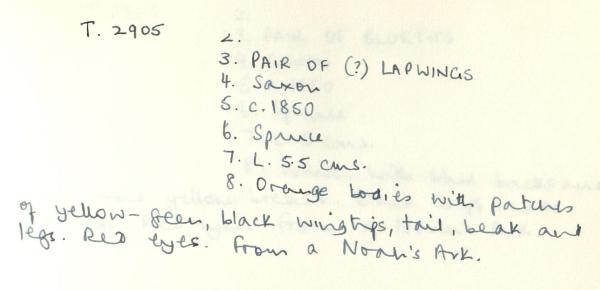 T. 2905
2.
3. PAIR OF (?) LAPWINGS
4. Saxon
5. c. 1850
6. Spruce
7. L. 5.5 cms.
8. Orange bodies with patches
of yellow-green, black wingtips, tail, beak and
legs. Red eyes. From a Noah's Ark.